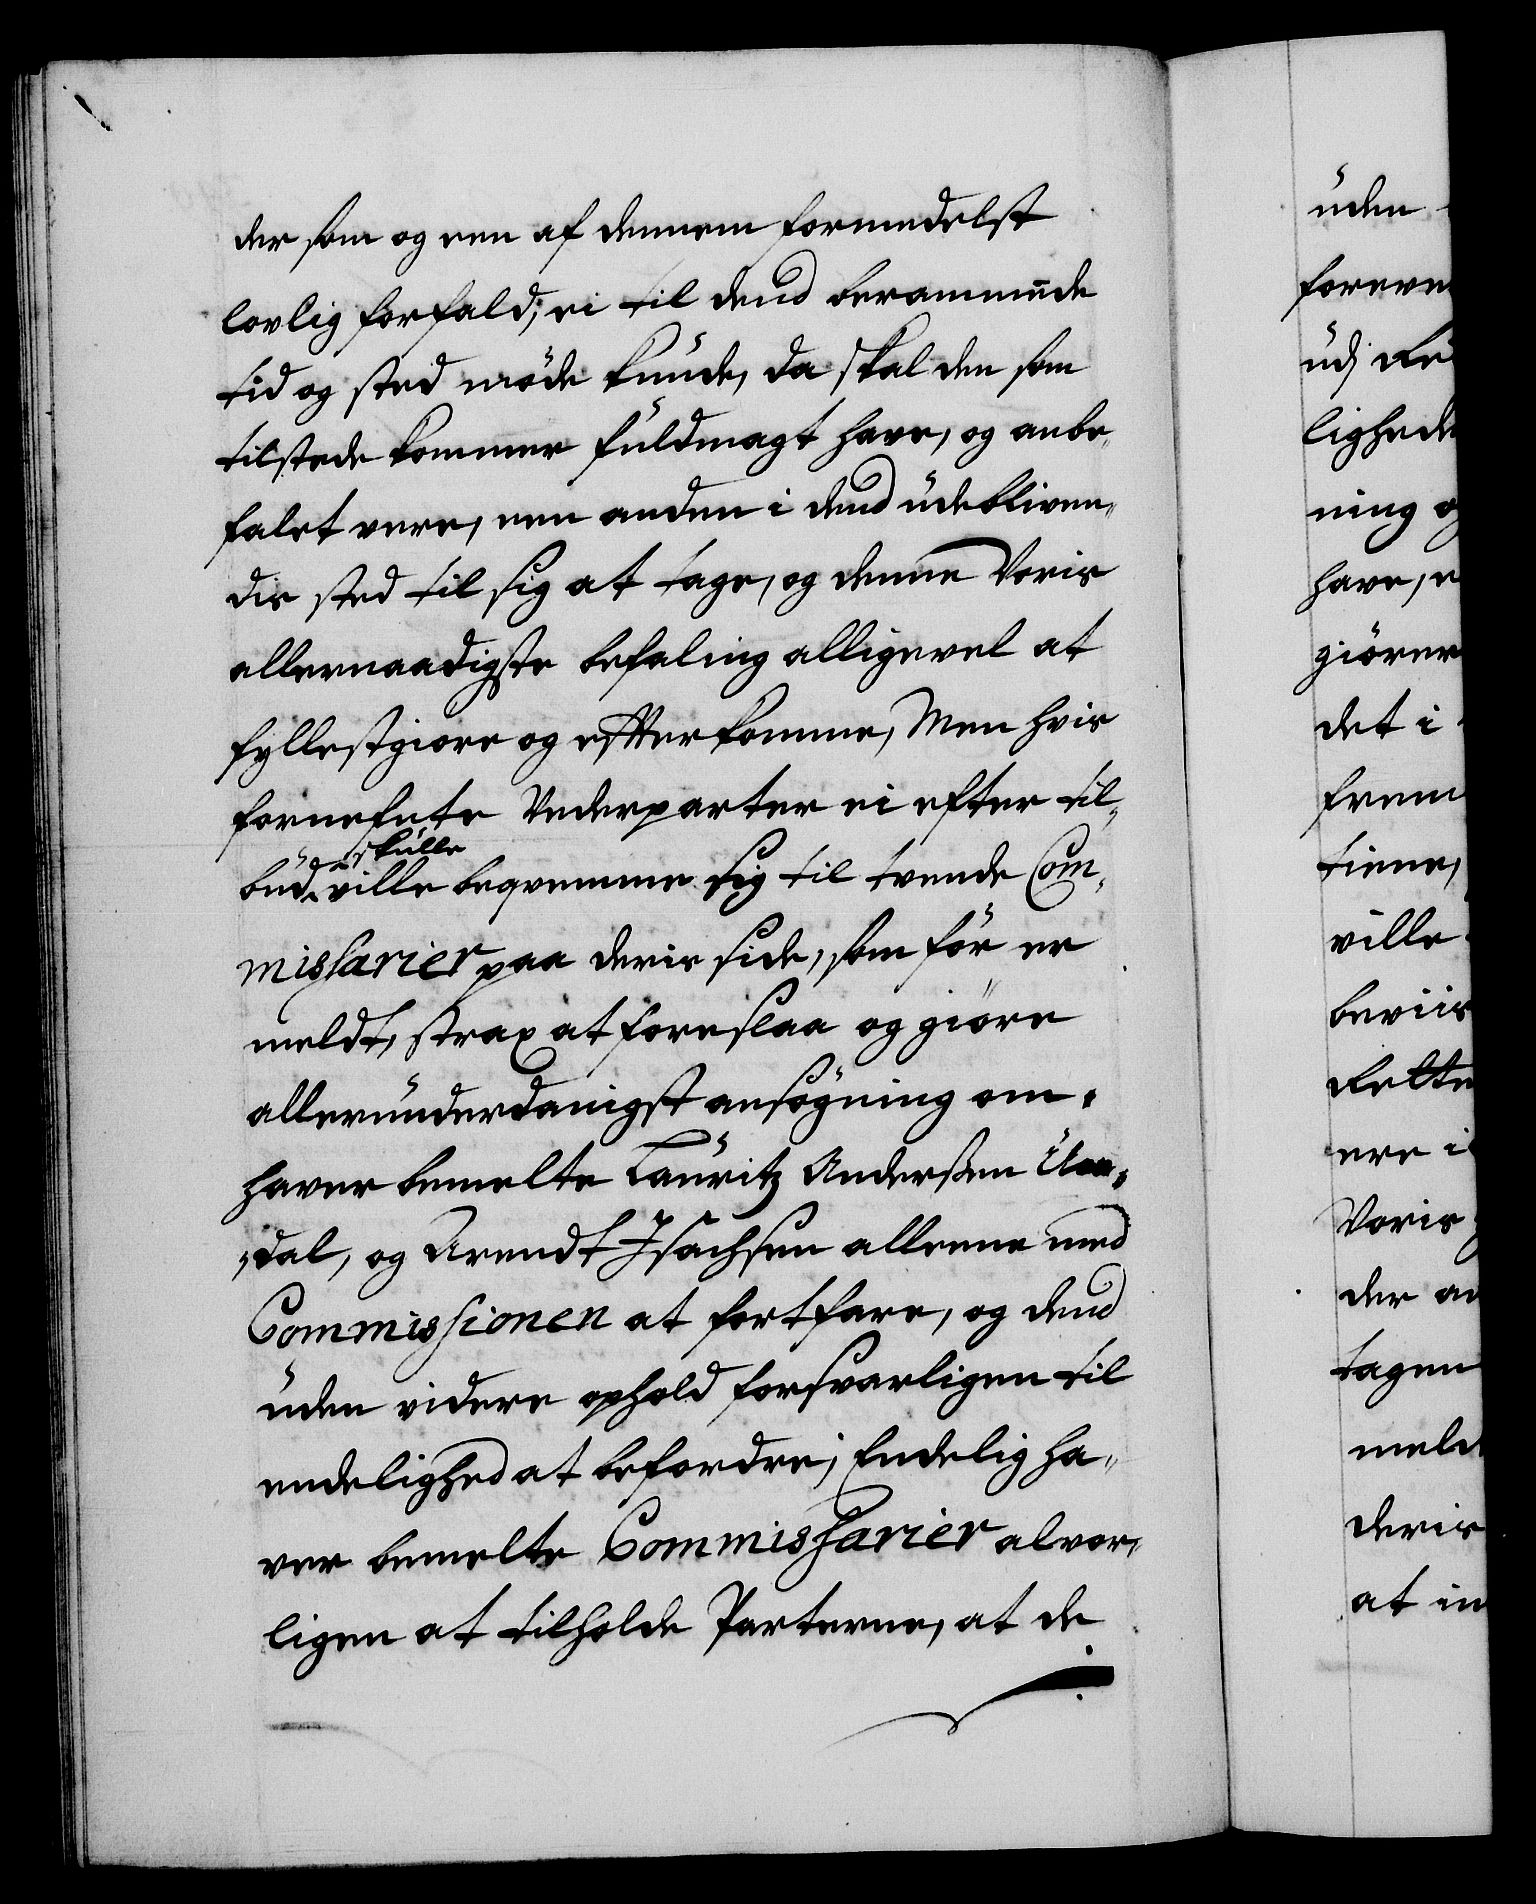 der som og een af dennem formedelst
lovlig forfald, ei til dend berammede
tid og sted möde kunde, da skal den som
tilstede kommer fuldmagt have, og anbe,,
falet vere, een anden i dend udebliven,,
dis sted til sig at tage, og denne Voris
allernaadigste befaling alligevel at
fyllestgiøre og effterkomme, Men hvis
fornefnte Vederparter ei efter til,,
skulle
bud ville beqvemme sig til tvende Com,,
missarier paa deris side, som för er
meldt, strax at foreslaa og giöre
allerunderdanigst ansögning om,,
haver bemelte Lauritz Anderßen
,,dal, og Arendt Isachsen alleene med
Commissionen at fortfare, og dend
uden videre ophold forsvarligen til
endelighed at befordre; Endelig ha,,
ver bemelte Commissarier alvor,,
ligen at tilholde Parterne, at de
uden
foreve
udj
lighede
ning og
have, e
giörer
det i
frem
tiene,
ville
beviis
Rette
ere i
Voris
der an
tagen
meld
deris
at in